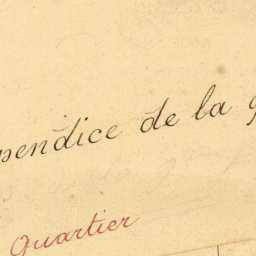 pendice de la
Quartier